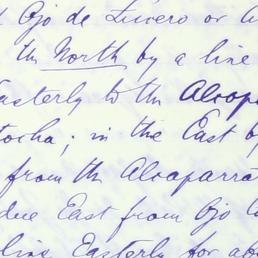 Ojo de Lucero or
the North by a line
Easterly to the Alcopa
tocha; in the East by
from the Alcaparra
due East from Ojo
line Easterly for